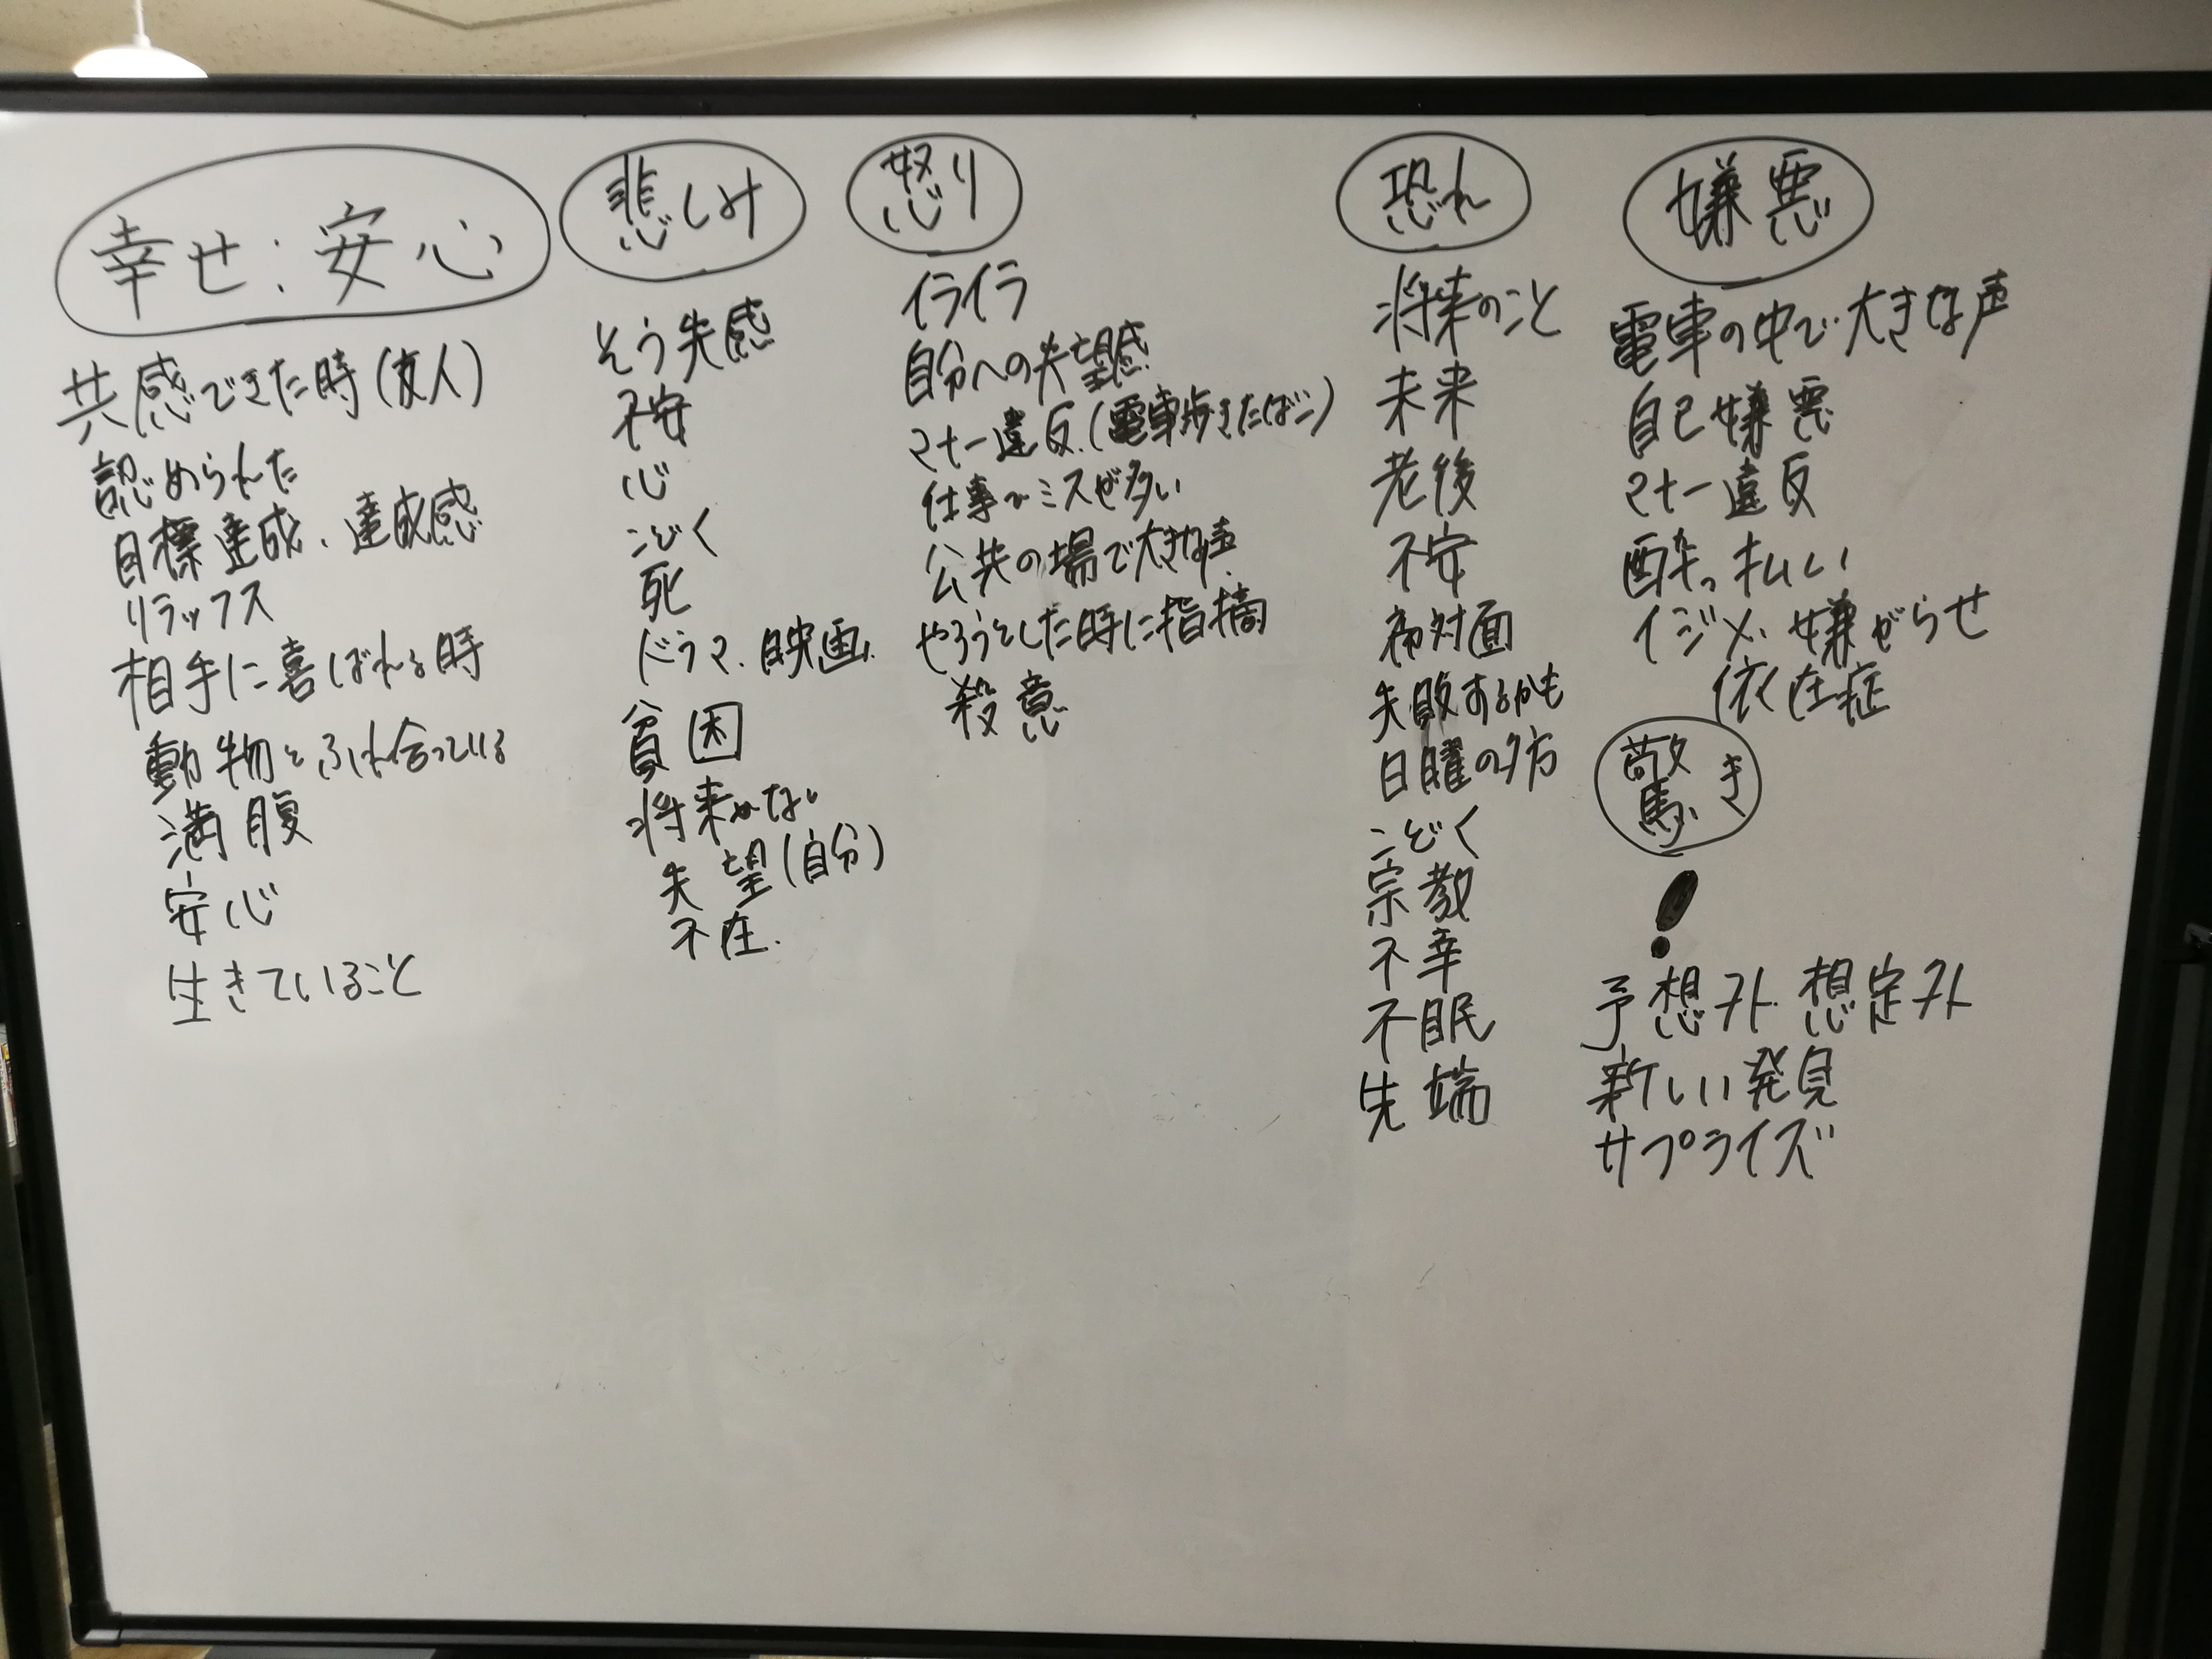 幸せ:安心
共感できた時(友人)
認められた
目標達成、達成感
リラックス
相手に喜ばれる時
動物とふれ合っている
満腹
安心
生きていること
悲しみ
そう失感
不安
心
こどく
死
ドラマ、映画
貧困
将来がない
失望(自分)
不在.
怒り
イライラ
自分への失望感
マナー違反.(電車歩きたばこ)
仕事でミスが多い
公共の場で大きな声
やろうとした時に指摘
殺意
恐れ
将来のこと
未来
老後
不安
初対面
失敗するかも
日曜の夕方
こどく
宗教
不幸
不眠
先端
嫌悪
電車の中で大きな声
自己嫌悪
マナー違反
酔っ払い
イジメ.嫌がらせ
依存症
驚き
!
予想外.想定外
新しい発見
サプライズ